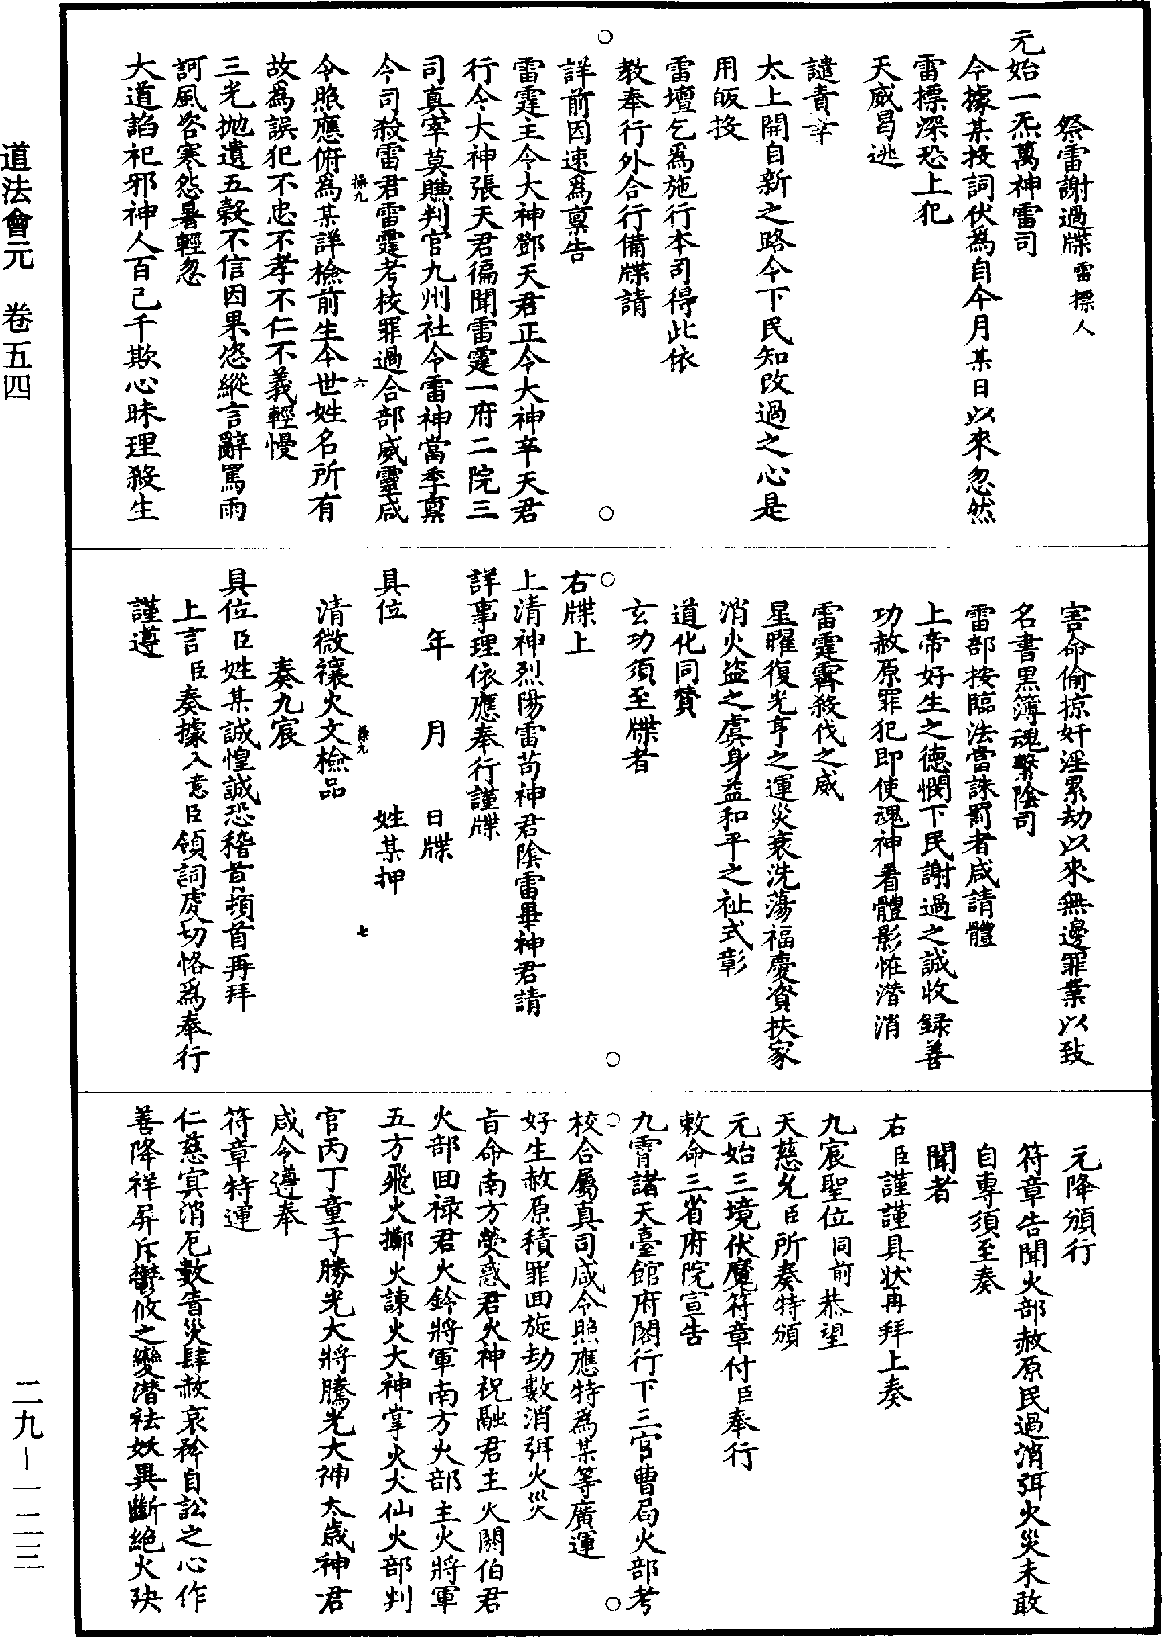 祭雷謝過牒雷摽人
元始一炁萬神雷司
今據某投詞伏為自今月某日以來忽然
雷摽深恐上犯
天威曷逃
譴責幸
太上開自新之路今下民知改過之心是
用皈投
雷壇乞為施行本司得此依
教奉行外合行備牒請
詳前因速為稟告
雷霆主令大神鄧天君正令大神辛天君
行令大神張天君徧聞雷霆一府二院三
司真宰莫賺判官九州社令雷神當季稟
令司殺雷君雷霆考校罪過合部威靈咸
令照應俯為某詳檢前生今世姓名所有
故為誤犯不忠不孝不仁不義輕慢
三光拋遺五穀不信因果恣縱言辭罵雨
訶風咨寒怨暑輕忽
大道諂祀邪神人百己千欺心昧理殺生
害命偷掠奸淫累劫以來無邊罪業以致
名書黑簿魂繫陰司
雷部按臨法當誅罰者咸請體
上帝好生之德憫下民謝過之誠收録善
功赦原罪犯即使魂神看體影恠潛消
雷霆霽殺伐之威
星曜復光亨之運災衰洗蕩福慶資扶家
消火盜之虞身益和平之祉式彰
道化同贊
玄功須至牒者
右牒上
上清神烈陽雷苟神君陰雷畢神君請
詳事理依應奉行謹牒
年　月　日牒
具位　姓某押
清微禳火文檢品
奏九宸
具位臣姓某誠惶誠恐稽首頓首再拜
上言臣奏據入意臣領詞虔切恪為奉行
謹遵
元降頒行
符章告聞火部赦原民過消弭火災未敢
自專須至奏
聞者
右臣謹謹具狀再拜上奏
九宸聖位同前恭望
天慈允臣所奏特頒
元始三境伏魔符章付臣奉行
敕命三省府院宣告
九霄諸天臺館府閣行下三官曹局火部考
校合屬真司咸令照應特為某等廣運
好生赦原積罪回旋劫數消弭火災
旨命南方熒惑君火神祝融君主火閼伯君
火部回祿君火鈴將軍南方火部主火將軍
五方飛火擲火諫火大神掌火大仙火部判
官丙丁童子勝光大將騰光大神太歲神君
咸令遵奉
符章特運
仁慈寘消厄數眚災肆赦哀矜自訟之心作
善降祥屏斥鬱攸之變潛袪妖異斷絕火殃
道法會元　卷五四
二九－一二三
六
七